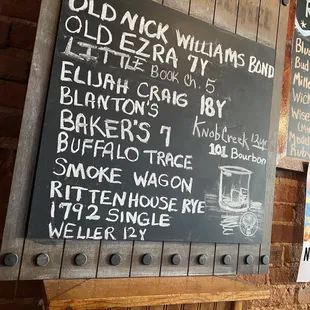 OLD NICK WILLIAMS BOND
OLD EZRA 7Y
LITTLE BOOK Ch. 5
ELIJAH CRAIG 18Y
BLANTON'S
BAKER'S 7
Knob Creek 12yr
101 Bourbon
BUFFALO TRACE
SMOKE WAGON
RITTENHOUSE RYE
1792 SINGLE
WELLER 12Y
Blue
Bud
Mille
Wick